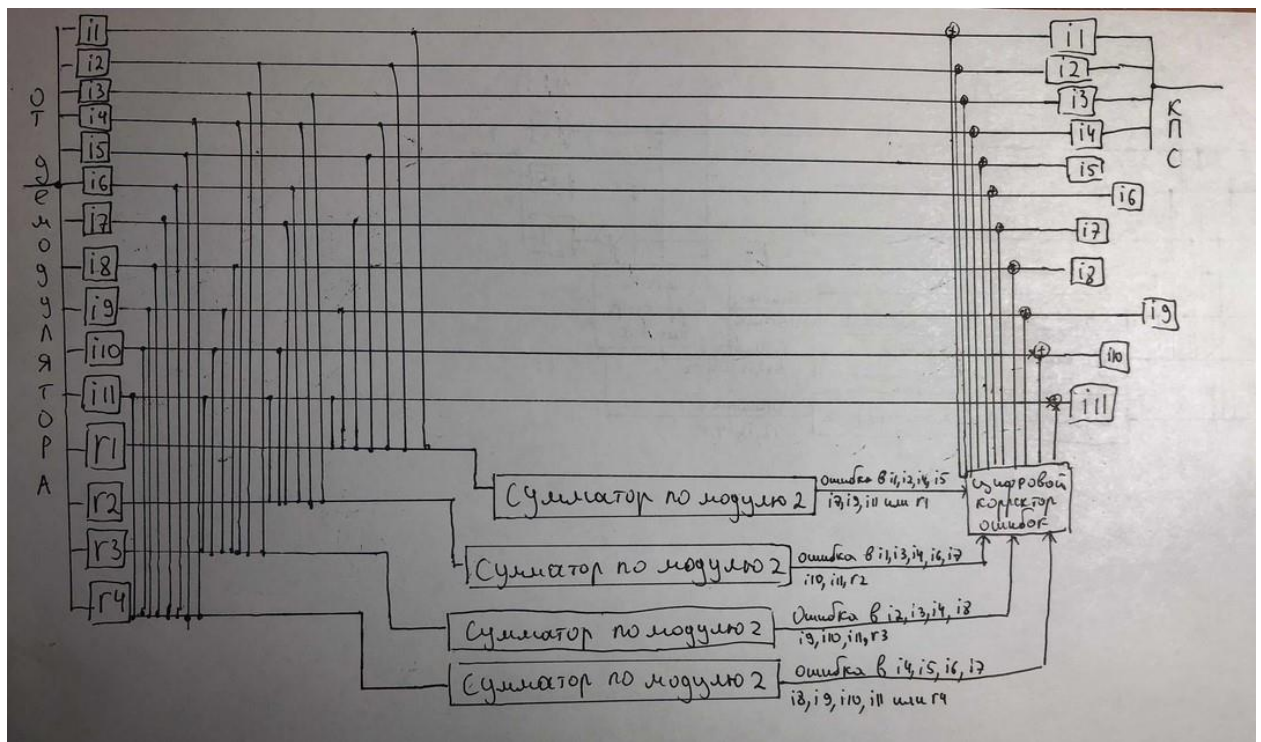 от демодулятора
i1
i2
i3
i4
i5
i6
i7
i8
i9
i10
i11
r1
r2
r3
r4
i1
i2
i3
i4
i5
i6
i7
i8
i9
i10
i11
КПС
Сумматор по модулю 2
ошибка в i1,i2,i4,i5
i7,i9,i11 или r1
Сумматор по модулю 2
ошибка в i1,i3,i4,i6,i7
i10,i11,r2
Сумматор по модулю 2
Ошибка в i2,i3,i4,i8
i9,i10,i11,r3
Сумматор по модулю 2
ошибка в i4,i5,i6,i7
i8,i9,i10,i11 или r4
цифровой
корректор
ошибок